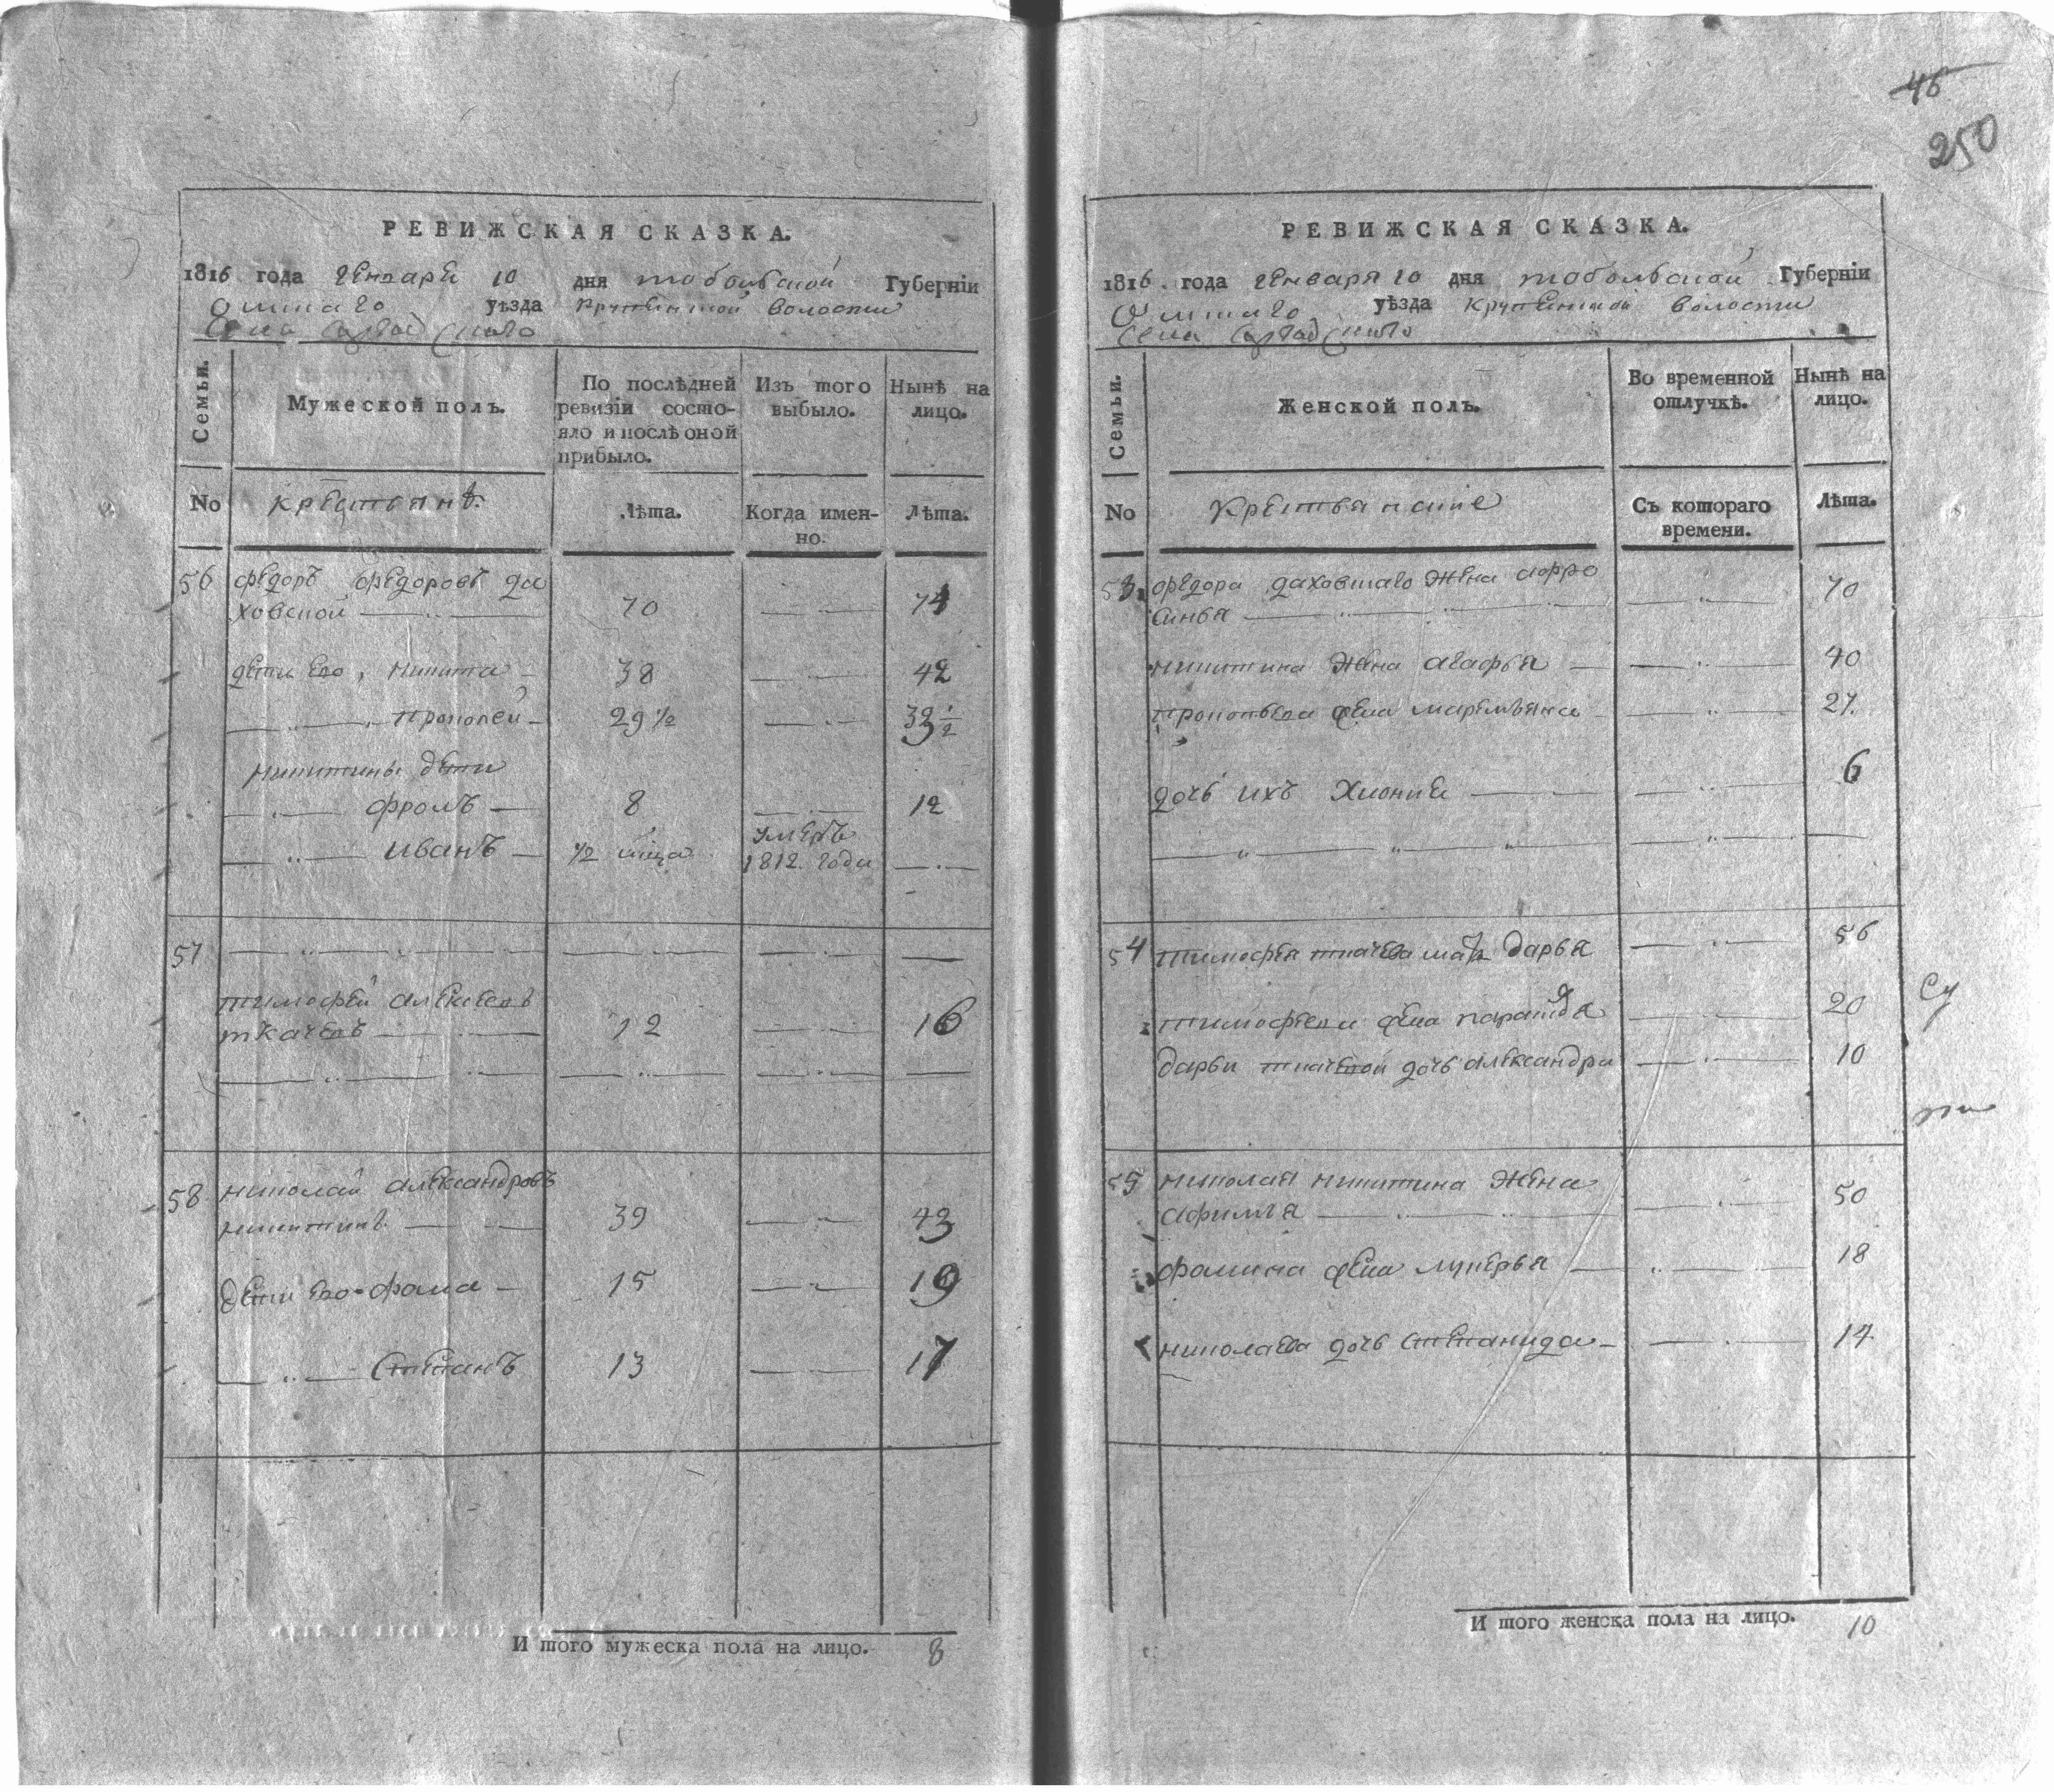 46
250
РЕВИЖСКАЯ СКАЗКА.
1816 года Генваря 10 дня тобольской Губернїи
Омскаго уѣзда Крупенской волости
Села
Семьи.
Мужеской полъ.
По послѣдней
ревизїи состо-
яло и послѣ оной
прибыло.
Изъ того
выбыло.
Нынѣ на
лицо.
No
крестьянѣ.
Лѣта.
Когда имен-
но.
Лѣта.
56 федоръ федоровъ да
ховской 70 74
дети ево, никита 38 42
прокопей 29 1/2 33 1/2
никитины дети
фролъ 8 12
иванъ 1/2 умеръ
1812 года
57
тимофей алексеевъ
ткачевъ 12 16
58 николай александровъ
никитинъ 39 43
дети ево фама 15 19
Степанъ 13 17
И того мужеска пола на лицо. 8
РЕВИЖСКАЯ СКАЗКА.
1816. года Генваря 10 дня тобольской Губернїи
Омскаго уѣзда Крупенской волости
Села
Семьи.
Женской полъ.
Во временной
отлучкѣ.
Нынѣ на
лицо.
No
Крестьянские
Съ котораго
времени.
Лѣта.
53 федора даховскаго жена афро
синья 70
никитина жена агафья 40
прокопьева жена маремьяна 27
дочь ихъ Хиония 6
54 тимофея ткачева мать дарья 56
тимофеева жена парасковья 20
дарьи ткачевой дочь александра 10
55 николая никитина жена
афимья 50
фамина жена лукерья 18
николаева дочь степанида 14
И того женска пола на лицо. 10